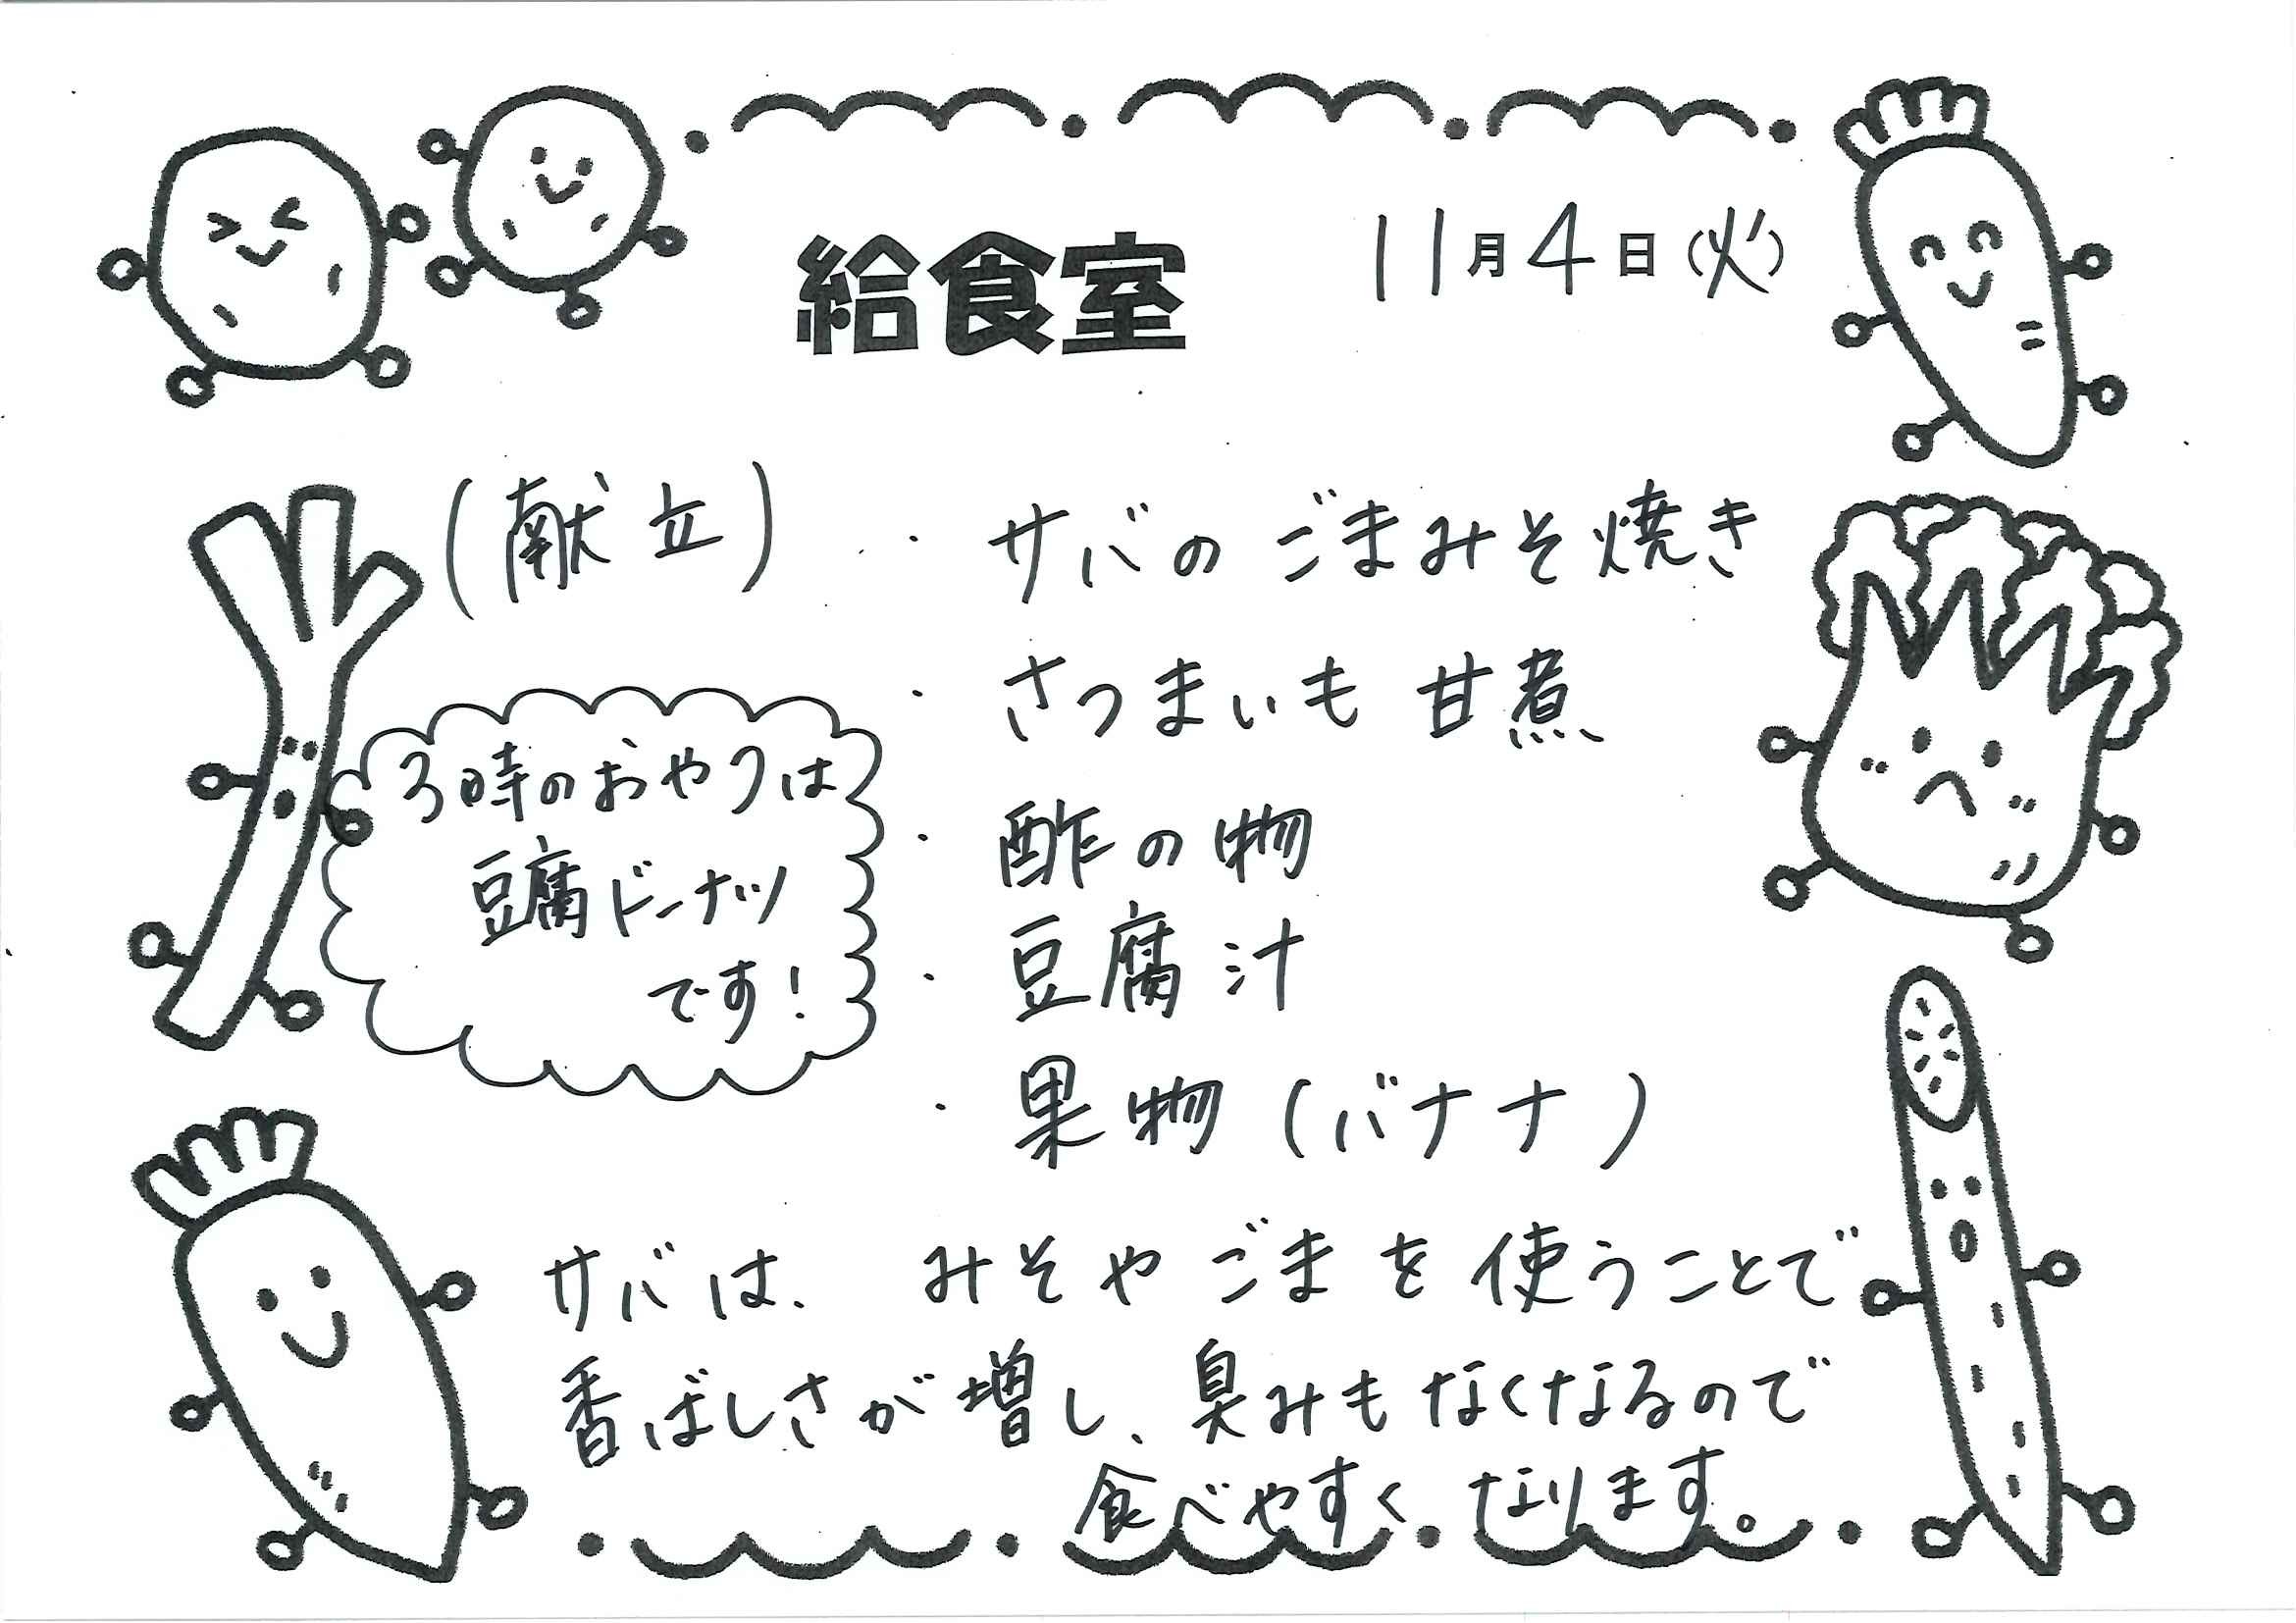 給食室
11月4日(火)
(献立)
・サバのごまみそ焼き
・さつまいも甘煮
・酢の物
・豆腐汁
・果物(バナナ)
3時のおやつは
豆腐ドーナツ
です!
サバは、みそやごまを使うことで
香ばしさが増し、臭みもなくなるので
食べやすくなります。